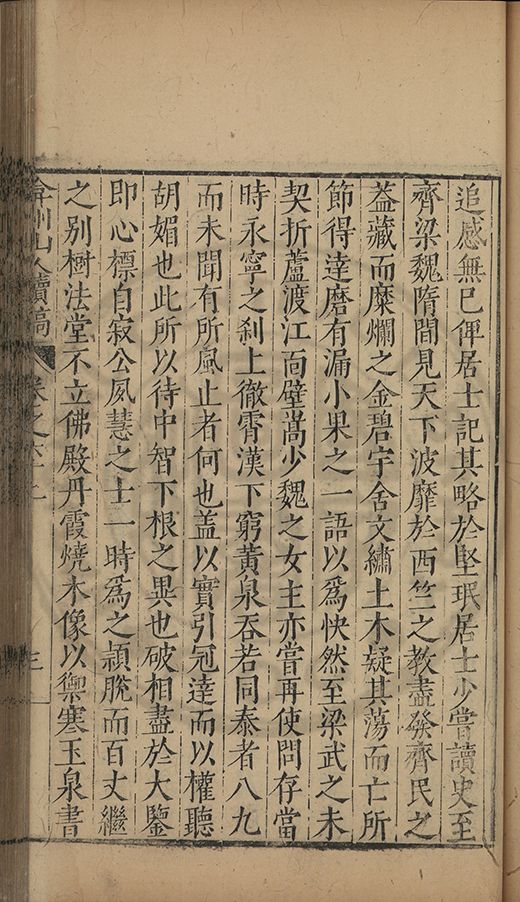 追感無已俾居士記其略於堅珉居士少嘗讀史至
齊梁魏隋間見天下波靡於西竺之教盡發齊民之
葢藏而糜爛之金碧宇舍文繡土木疑其蕩而亡所
節得達磨有漏小果之一語以為快然至梁武之未
契折蘆渡江面壁嵩少魏之女主亦嘗再使問存當
時永寧之刹上徹霄漢下窮黃泉吞若同泰者八九
而未聞有所風止者何也盖以實引冠達而以權聽
胡媚也此所以待中智下根之異也破相盡於大鑒
即心標自寂公夙慧之士一時爲之頴脫而百丈繼
之别樹法堂不立佛殿丹霞燒木像以禦寒玉泉書
弇州山人續稿 卷之六十二 三